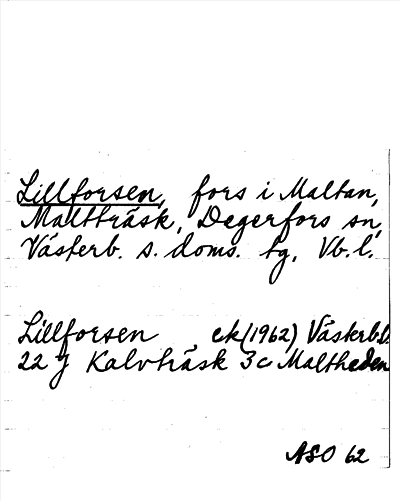 Lillforsen, fors i Maltan,
Maltträsk, Degerfors sn,
Västerb. s. doms. tg, Vb. l.
Lillforsen, ek (1962) Västerb.l.
22 J Kalvträsk 3c Maltheden
ASO 62